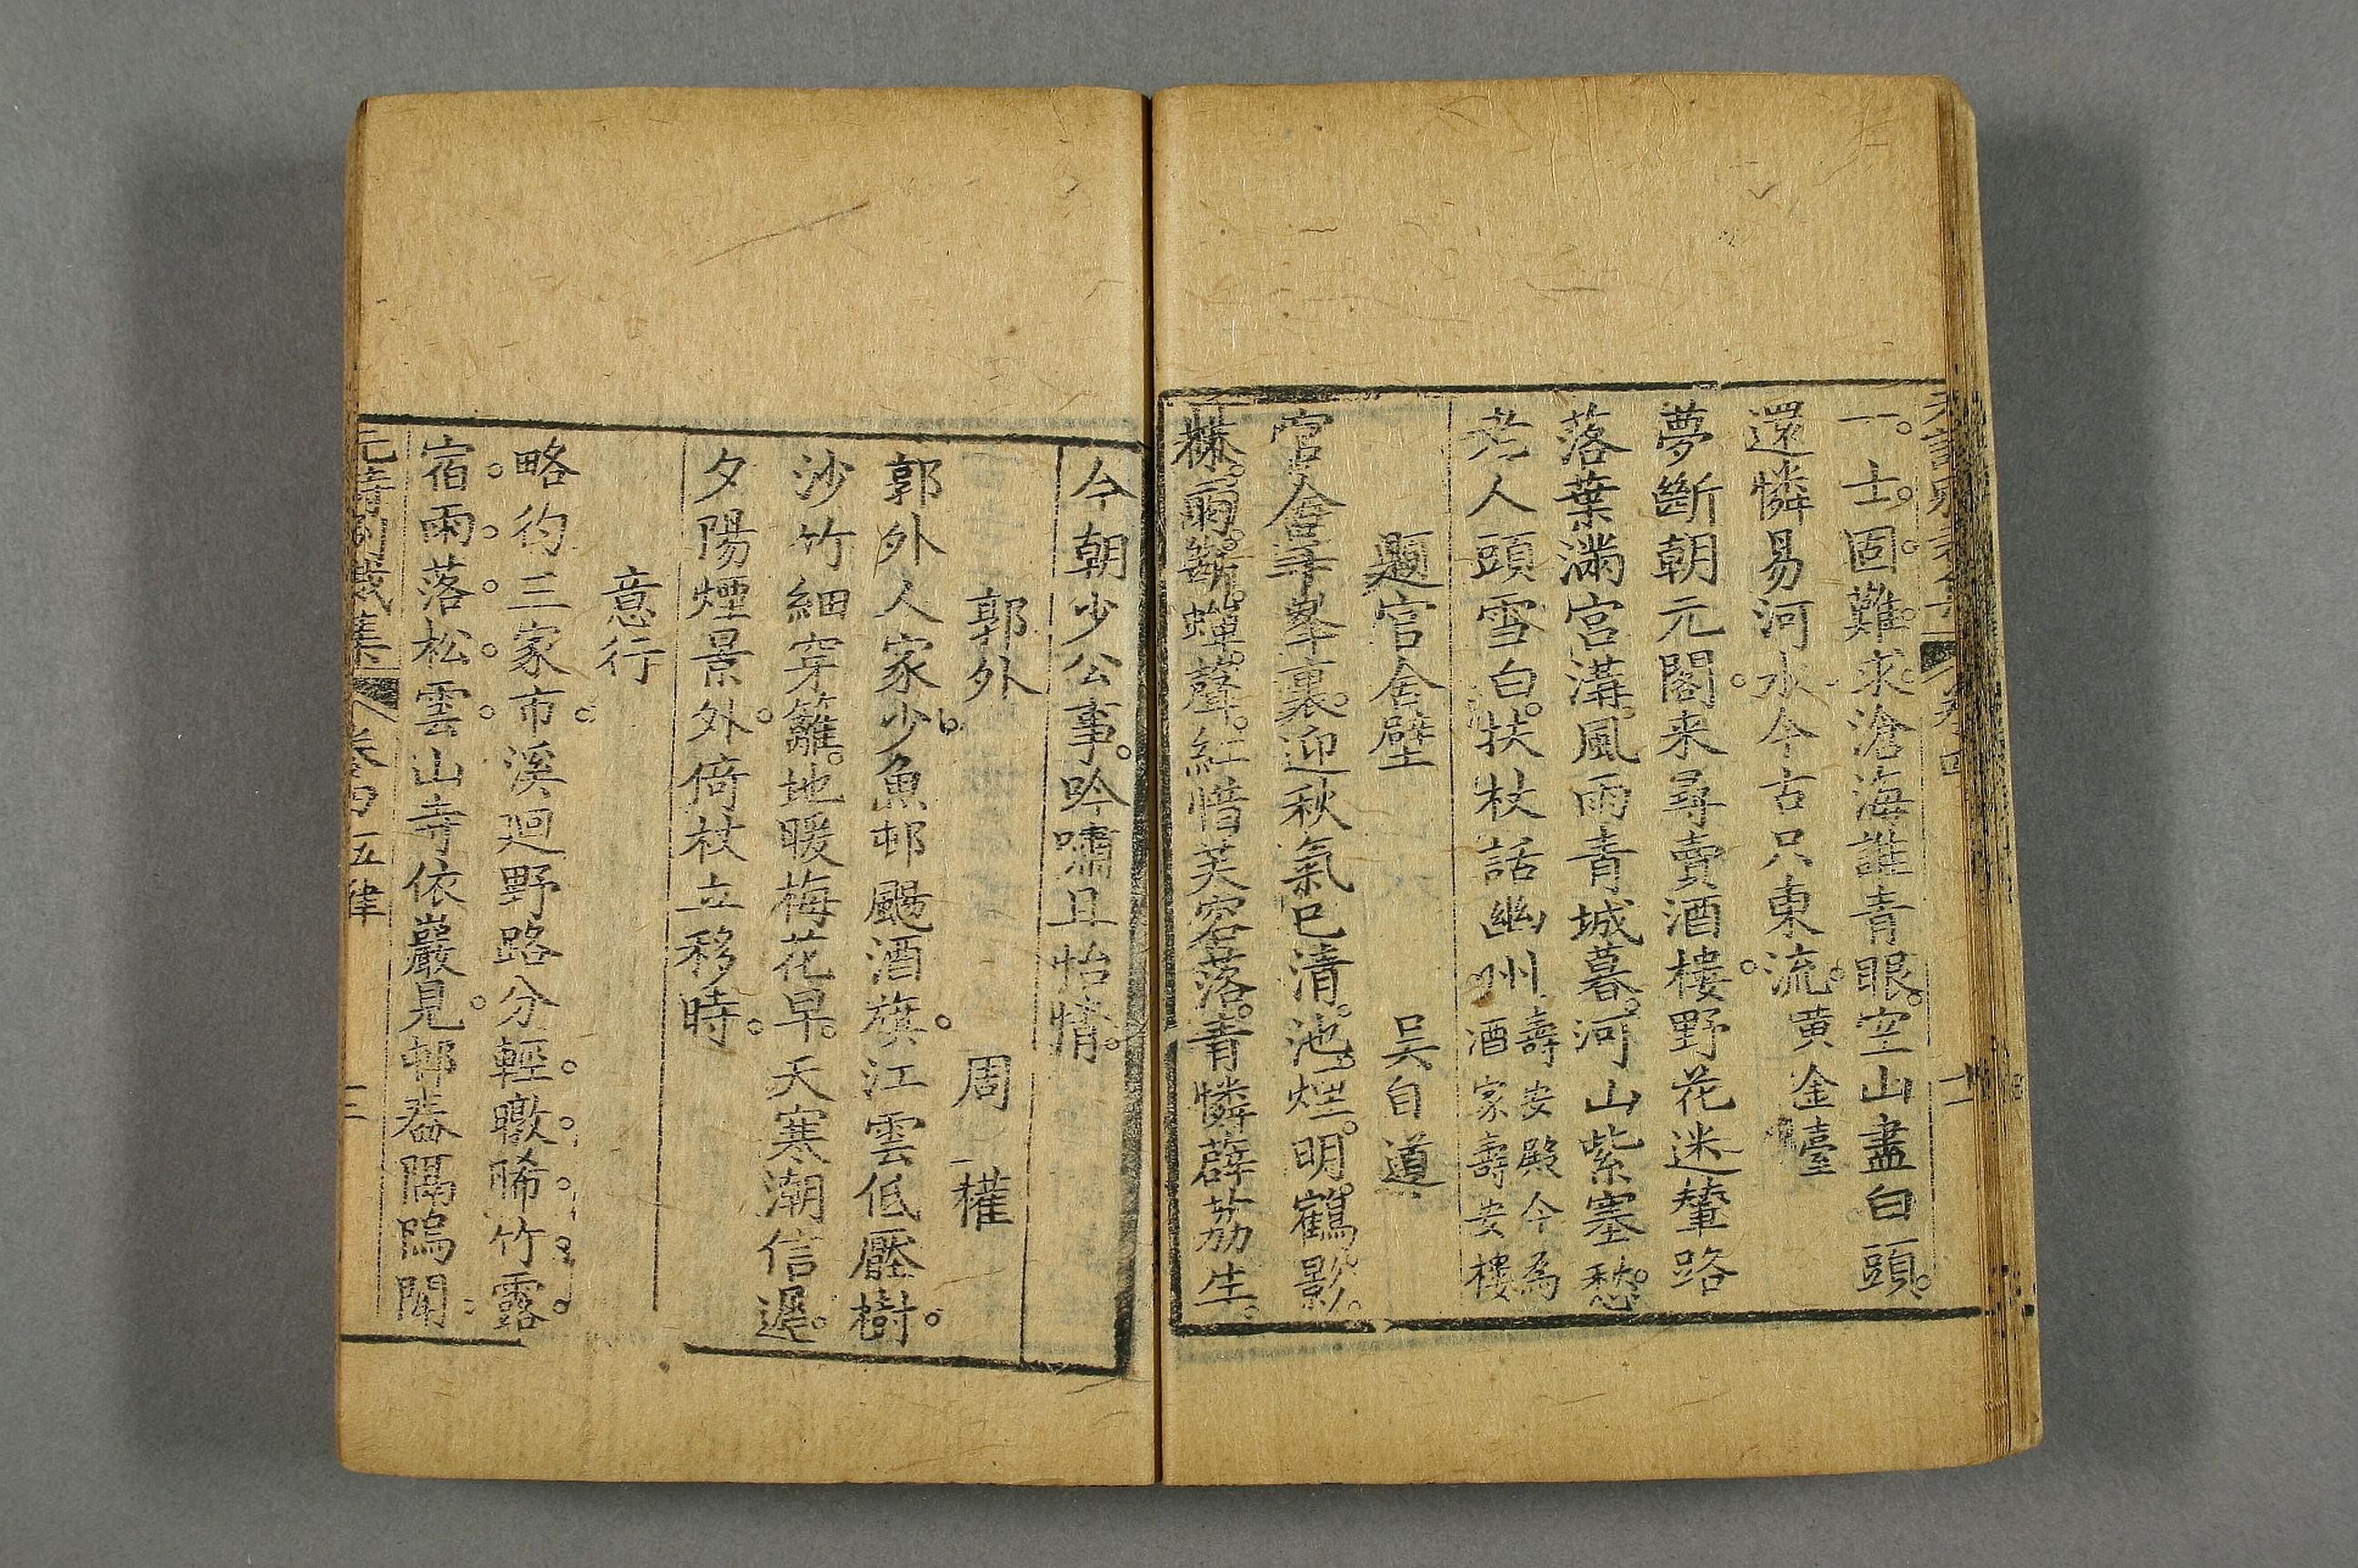 一士固難求滄海誰青眼空山盡白頭
還憐易河水今古只東流黄金臺
夢斷朝元閣来尋賣酒樓野花迷輦路
落葉滿宮溝風雨青城暮河山紫塞愁
老人頭雪白扶杖話幽州壽安殿今為
酒家壽安樓
題官舍壁 吴自道
官舍裏迎秋氣已清池煙明鶴影
林雨斷蟬聲紅惜芙容落青憐薜荔生
今朝少公事吟嘯且怡情
郭外 周權
郭外人家少魚邨颺酒旗江雲低壓樹
沙竹細穿籬地暖梅花早天寒潮信遲
夕陽煙景外倚杖立移時
意行
略彴三家市溪迴野路分輕暾晞竹露
宿雨落松雲山寺依巖見邨舂隔隖聞
元詩別裁集 卷四 五律 三